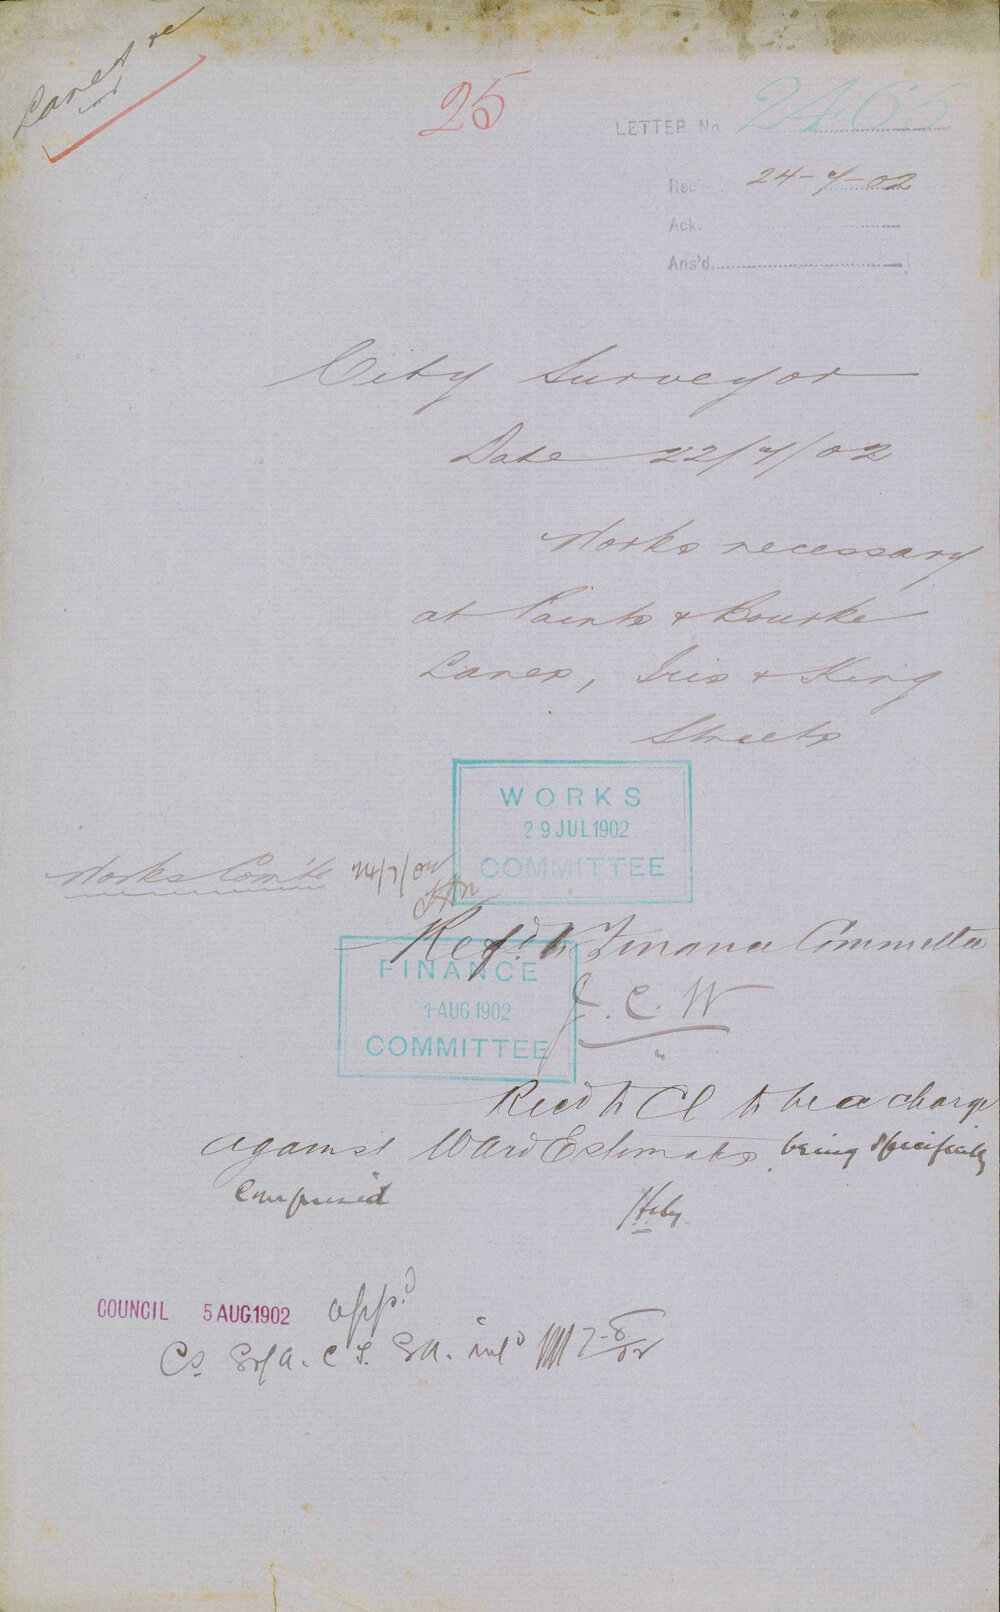 Lanes &c
25
LETTER No 2465
Rec' 24-7-02
Ack.
Ans'd
City Surveyor
Date 22/7/02
Works necessary
at Saints & Bourke
Lanes, Iris & King
Streets
WORKS
29 JUL 1902
COMMITTEE
Works Com'te 24/7/02
Ref'd to Finance Committee
J. C. W
FINANCE
1 AUG 1902
COMMITTEE
Recd to Cl to be a charge
against Ward Estimates being specifically
comprised
COUNCIL 5 AUG. 1902 app'd
Cs inf'd 7-8/02